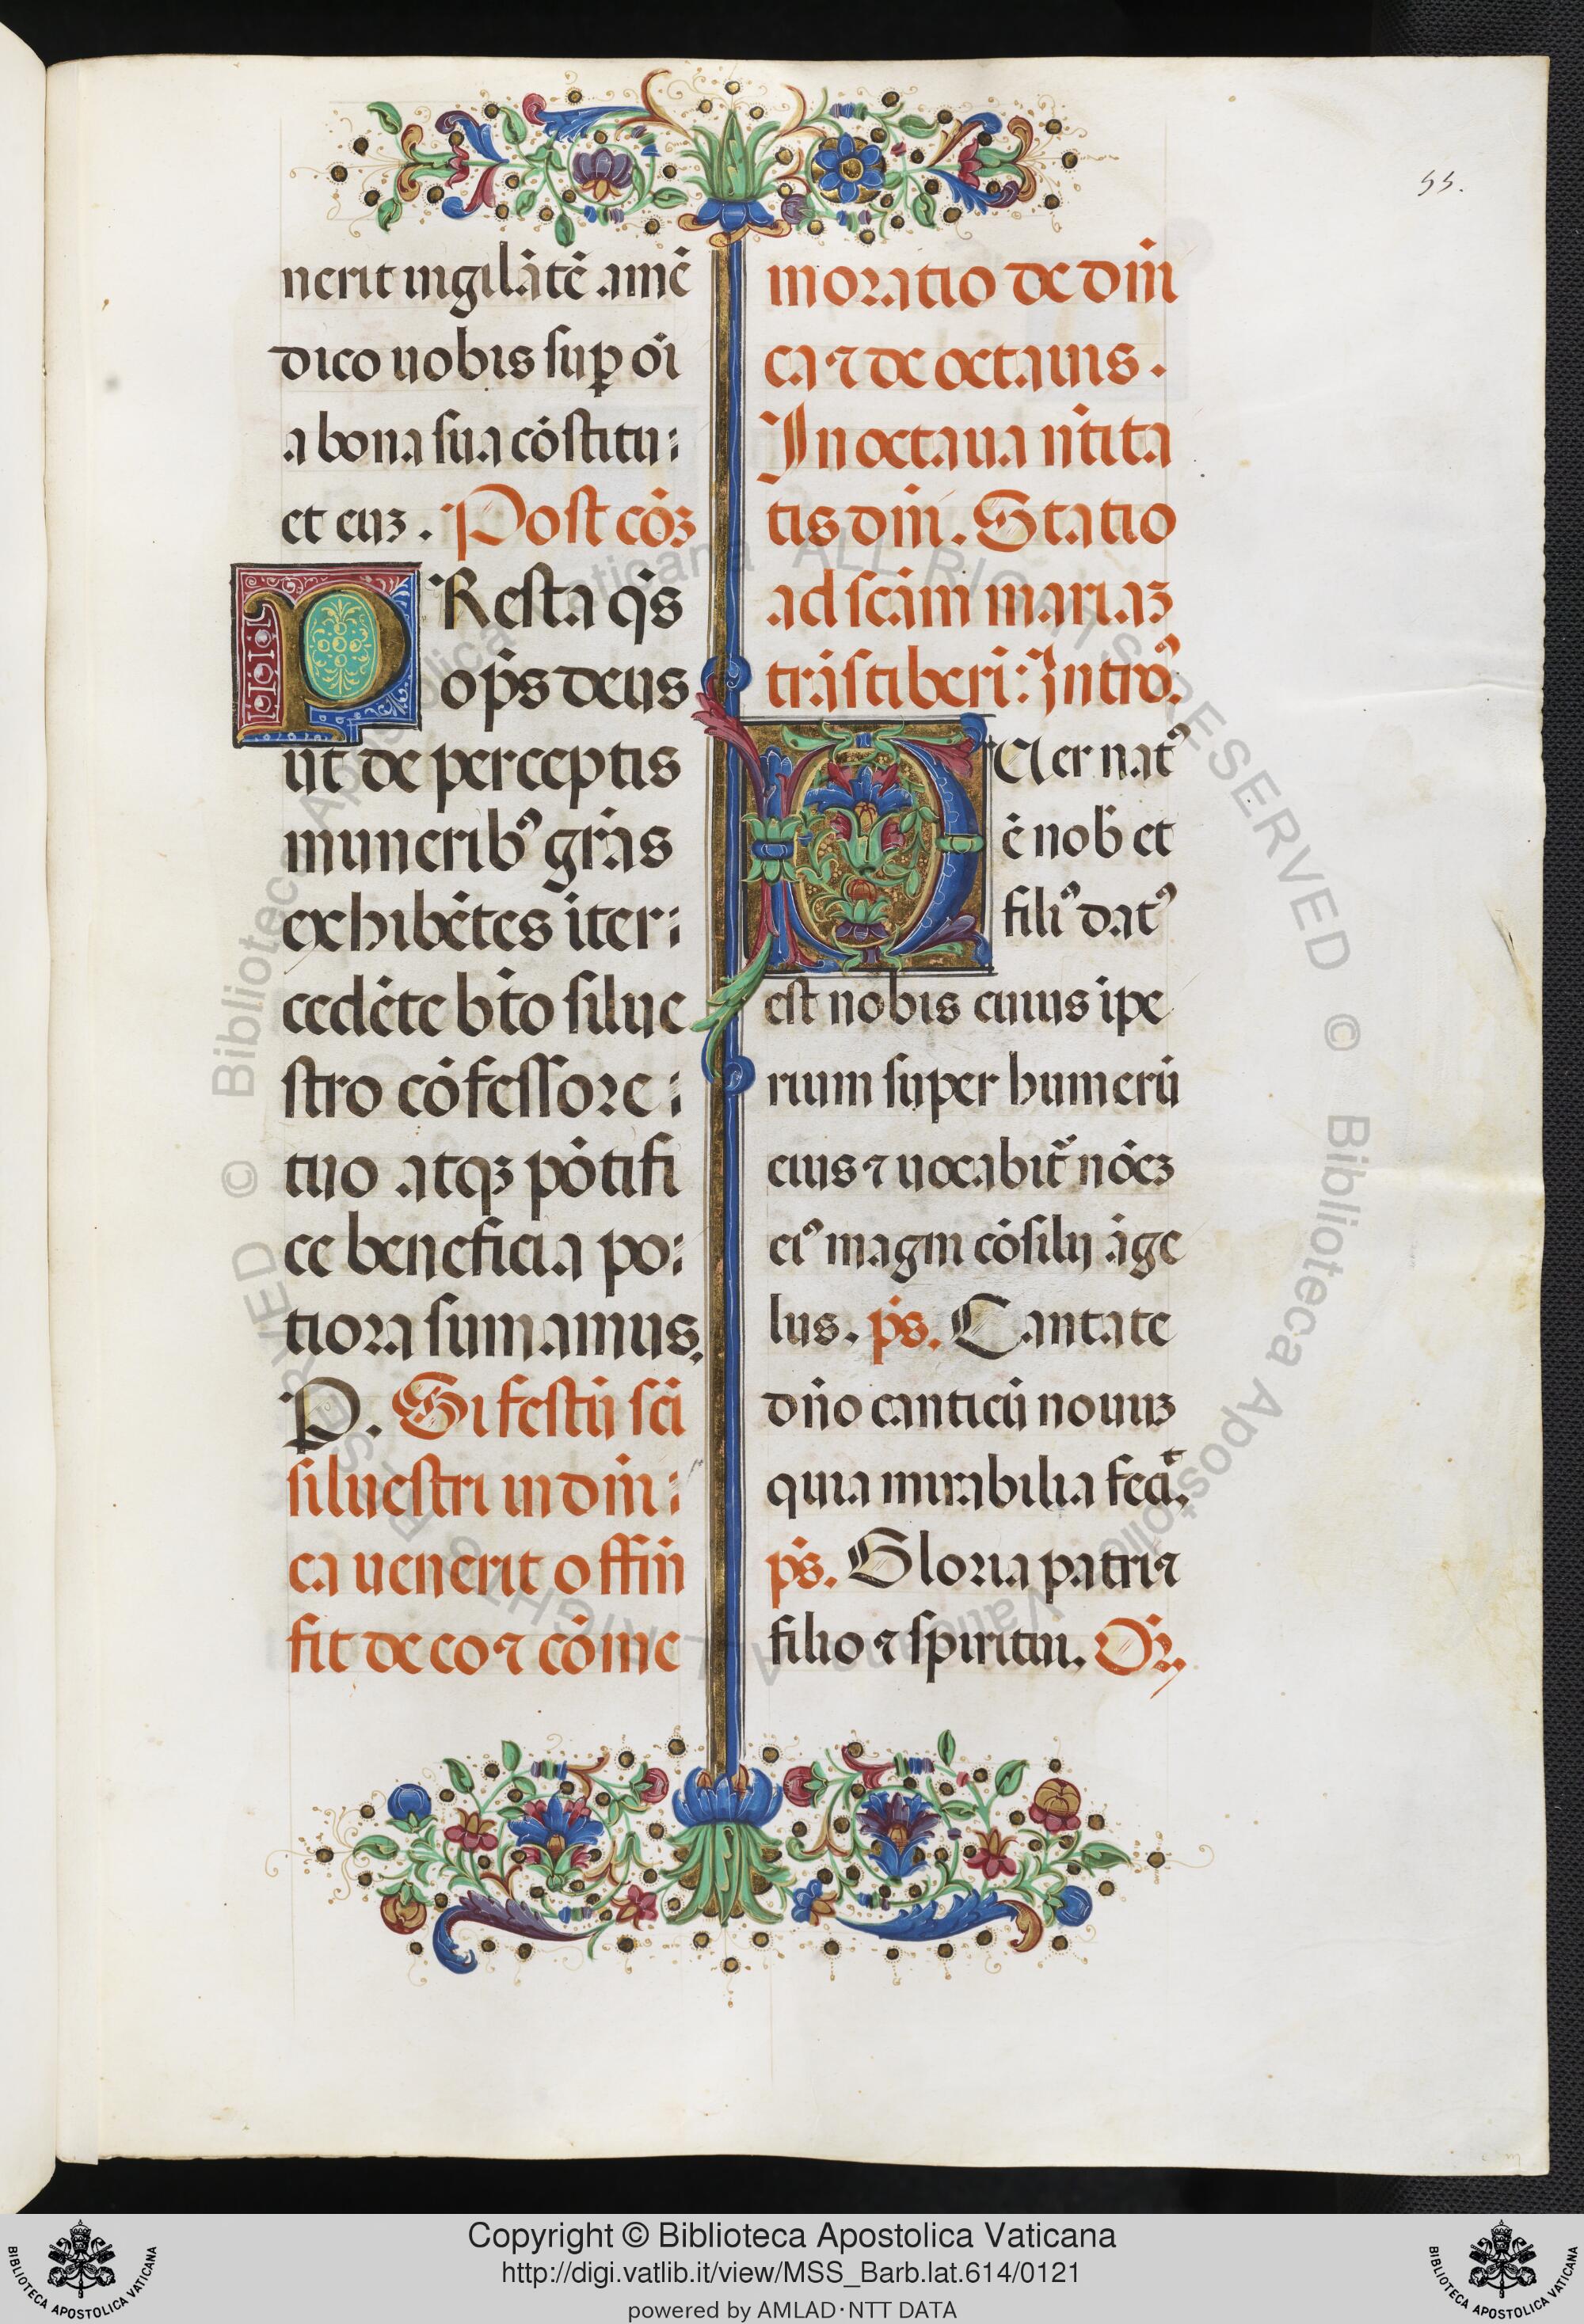 55.
nerit uigilātē amē
dico uobis sup oīi
a bona sua cōstitu:
et euʒ. Post cōʒ
PResta q̄s
op̄s deus
ut de perceptis
munerib⁹ grās
exhibētes īter:
cedēte bt̄o silue
stro cōfessore:
tuo atqʒ pōtifi
ce beneficia po:
tiora sumamus.
P. Si festū sc̄i
siluestri in dn̄i:
ca uenerit offm̄
fit de eo ⁊ cōme
moratio de dn̄i
ca ⁊ de octauis.
In octaua n̄tita
tis dn̄i. Statio
ad sc̄am mariaʒ
trāstiberī: Intro⁹.
PUer nat⁹
ē nob̄ et
fili⁹ dat⁹
est nobis cuius īpe
rium super humerū
eius ⁊ uocabit̄ nōeʒ
ei⁹ magni cōsilij āge
lus. p̄s. Cantate
dn̄o canticū nouuʒ
quia mirabilia fecit.
p̄s. Gloria patri ⁊
filio ⁊ spiritui. Or̄.
Copyright © Biblioteca Apostolica Vaticana
http://digi.vatlib.it/view/MSS_Barb.lat.614/0121
powered by AMLAD·NTT DATA
BIBLIOTECA APOSTOLICA VATICANA
BIBLIOTECA APOSTOLICA VATICANA
© Biblioteca Apostolica Vaticana ALL RIGHTS RESERVED © Biblioteca Apostolica Vaticana ALL RIGHTS RESERVED